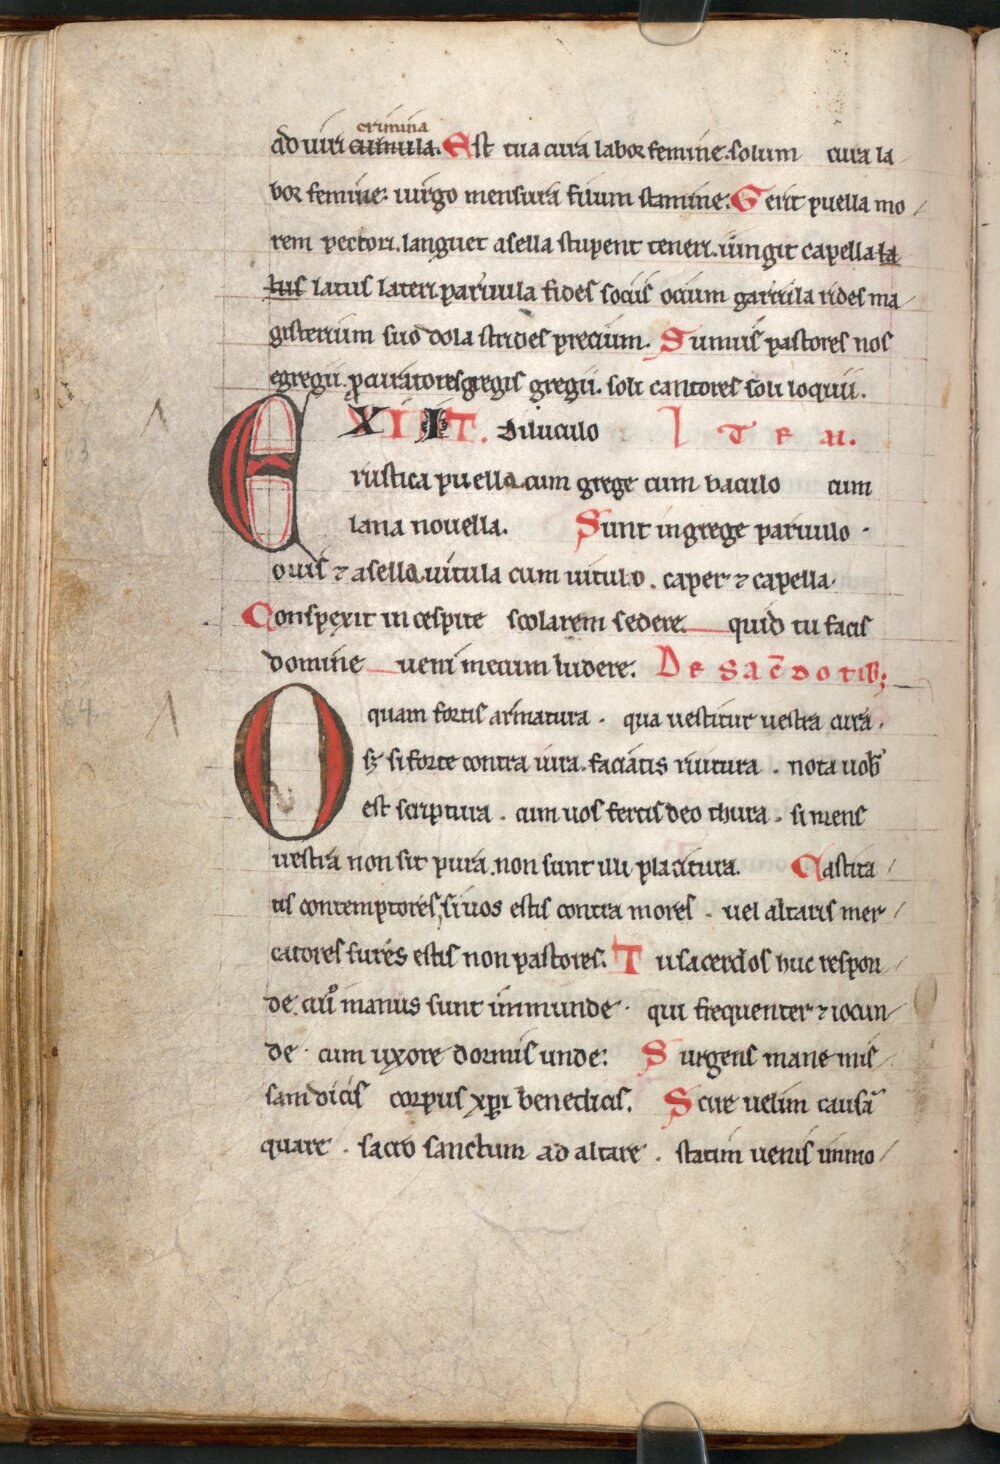 crimina
ad uiri cumula. Est tua cura labor femine. solum cura la
bor femine. uirgo mensura filum stamine. Gerit puella mo
rem pectori. languet asella stupent teneri. iungit capella la
tus latus lateri. paruula fides sociis ocium garrula rides ma
gisterium suo dola strides precium. Sumus pastores nos
egregii. procuratores gregis gregii. soli cantores soli loquii.
EXIIT. diluculo ITEM.
rustica puella cum grege cum baculo cum
lana nouella. Sunt in grege paruulo
ouis ⁊ asella uitula cum uitulo. caper ⁊ capella.
Conspexit in cespite scolarem sedere quid tu facis
domine ueni mecum ludere. De sac̄dotib;
O quam fortis armatura. qua uestitur uestra cura.
sꝫ si forte contra iura. faciatis ruitura. nota uob̄
est scriptura. cum uos fertis deo thura. si mens
uestra non sit pura. non sunt illi placitura. Castita
tis contemptores, si uos estis contra mores. uel altaris mer
catores fures estis non pastores. Tu sacerdos huc respon
de. cuiꝰ manus sunt inmunde. qui frequenter ⁊ iocun
de. cum uxore dormis unde. Surgens mane mis
sam dicis corpus xpi benedicis. Scire uelim causā
quare. sacro sanctum ad altare. statim uenis inmo